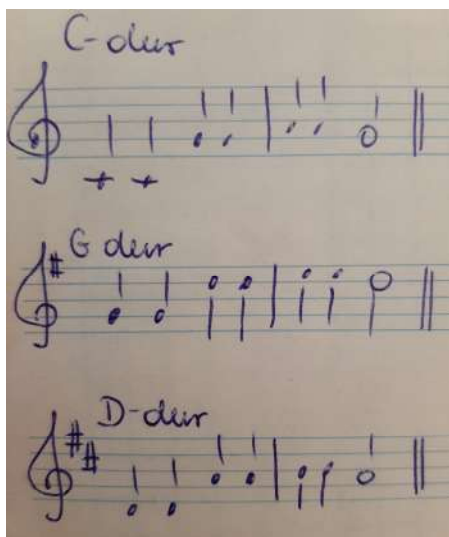 C-dur
G dur
D-dur